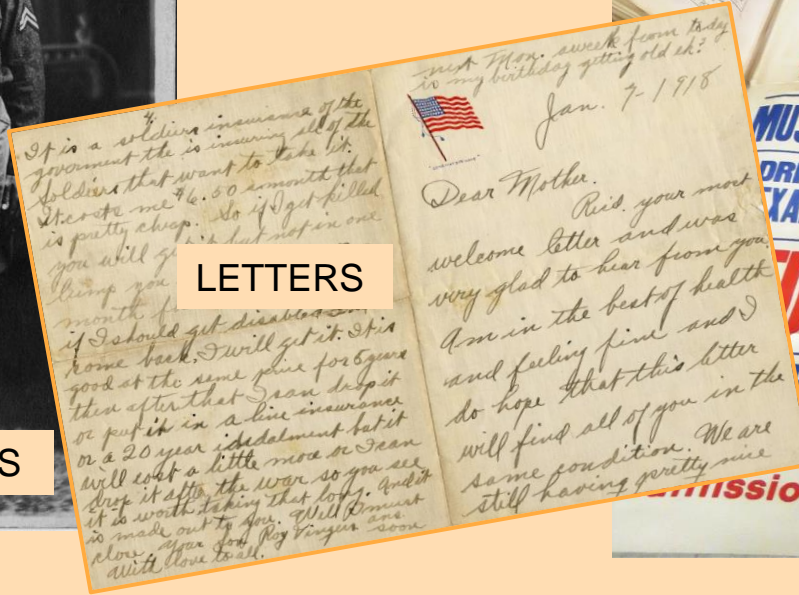 4.
It is a soldiers insurance of the
goverment the is insuring all of the
Soldiers that want to take it.
It costs me $6.50 a month that
is pretty cheap. So if I get killed
you will get it but not in one
lump you
month
if I should get disabled
come back, I will get it. It is
good at the same price for 5 years
then after that I can drop it
or put it in a line insurance
or a 20 year indalment but it
will cost a little more or I can
drop it after the war so you see
it is worth taking that long. And it
is made out to you. Well I must
close. Your son Roy ans
With love to all. soon
LETTERS
next Mon. a week from today
is my birthday getting old eh?
Jan. 7-1918
Dear Mother.
Recd. your most
welcome letter and was
very glad to hear from you.
Am in the best of health
and feeling fine and I
do hope that this letter
will find all of you in the
same condition. We are
still having pretty nice
S
MUS